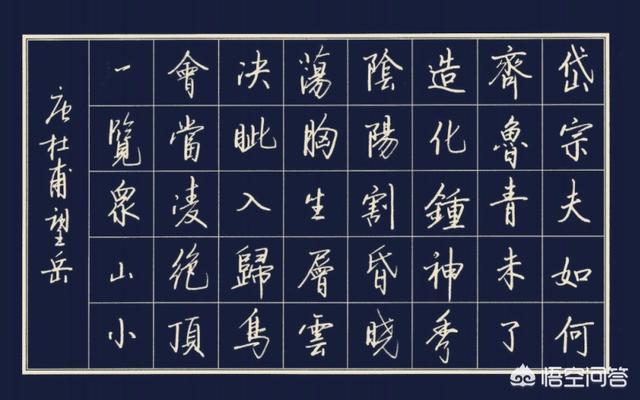 岱宗夫如何
齊魯青未了
造化鍾神秀
陰陽割昏曉
蕩胸生層雲
決眦入歸鳥
會當凌絕頂
一覽眾山小
唐杜甫望岳
悟空问答